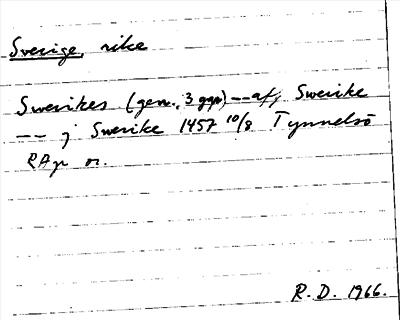 Sverige, rike
Swerikes (gen., 3 ggr) -- af, Swerike
-- j Swerike 1457 10/8 Tynnelsö
RAp or.
R. D. 1966.